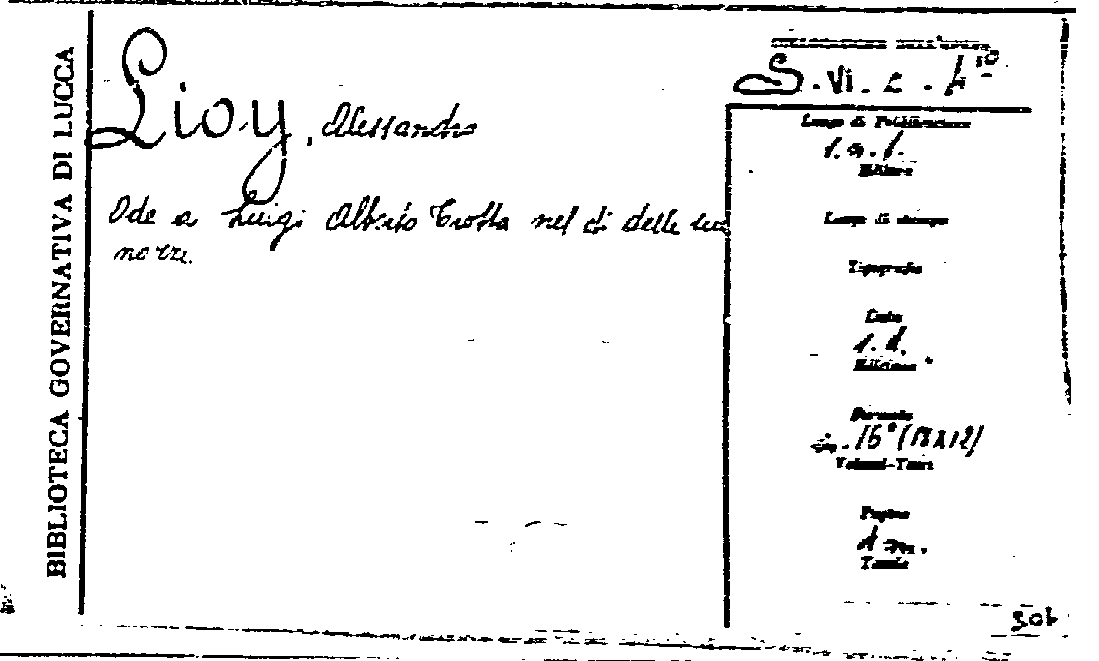 BIBLIOTECA GOVERNATIVA DI LUCCA
Lioy, Alessandro
Ode a Luigi Alberto Trotta nel dì delle sue
nozze.
S. VI. 2.
Luogo di Pubblicazione
s. a. l.
Editore
Luogo di stampa
Tipografia
Data
s. d.
Edizione
Formato
in. 16° (18x12)
Volumi-Tomi
Pagine
Tavole